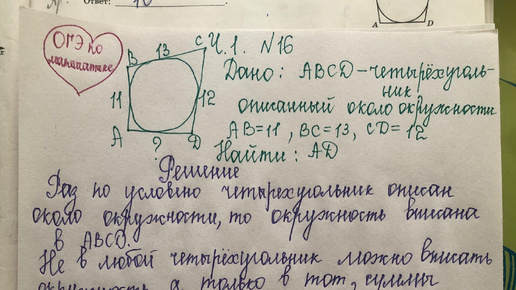 Ответ:
A D
ОГЭ по
математике
Ч.1. N16
B 13 C
Дано: ABCD - четырёхуголь-
ник,
11 12
описанный около окружности
AB=11, BC=13, CD=12
A ? D
Найти: AD
Решение
Раз по условию четырехугольник описан
около окружности, то окружность вписана
в ABCD.
Не в любой четырёхугольник можно вписать
окружность, а только в тот, суммы